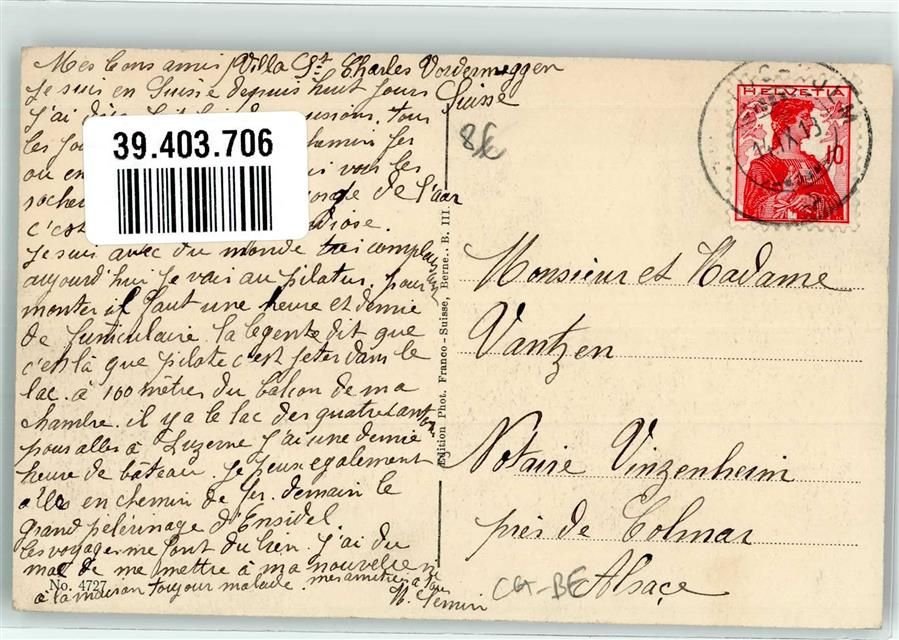 Mes bons amis Villa St Charles Vordermeggen
Suisse
Je suis en Suisse depuis huit jours
j'ai
tous
les
chemin fer
ou en
vois les
rocher
de l'aar
c'est
diose.
Je suis avec du monde
aujourd'hui je vais au pilatus, pour
monter il faut une heure et demie
de funiculaire. la legente dit que
c'est là que pilate c'est jeter dans le
lac. à 100 mètres du balcon de ma
chambre. il y a le lac des quatre canton
pour aller à Luzerne j'ai une demie
heure de bâteau. je peux egalement
aller en chemin de fer. demain le
grand pélérinage d'Ensidel.
les voyages me font du bien. j'ai du
mal de me mettre à ma nouvelle vie
à la maison toujour malade. mes amitiés a
No. 4727
39.403.706
Edition Phot. Franco-Suisse, Berne. B. III.
8€
HELVETIA
10
Monsieur et Madame
Vantzen
Notaire Vinzenheim
près de Colmar
Alsace